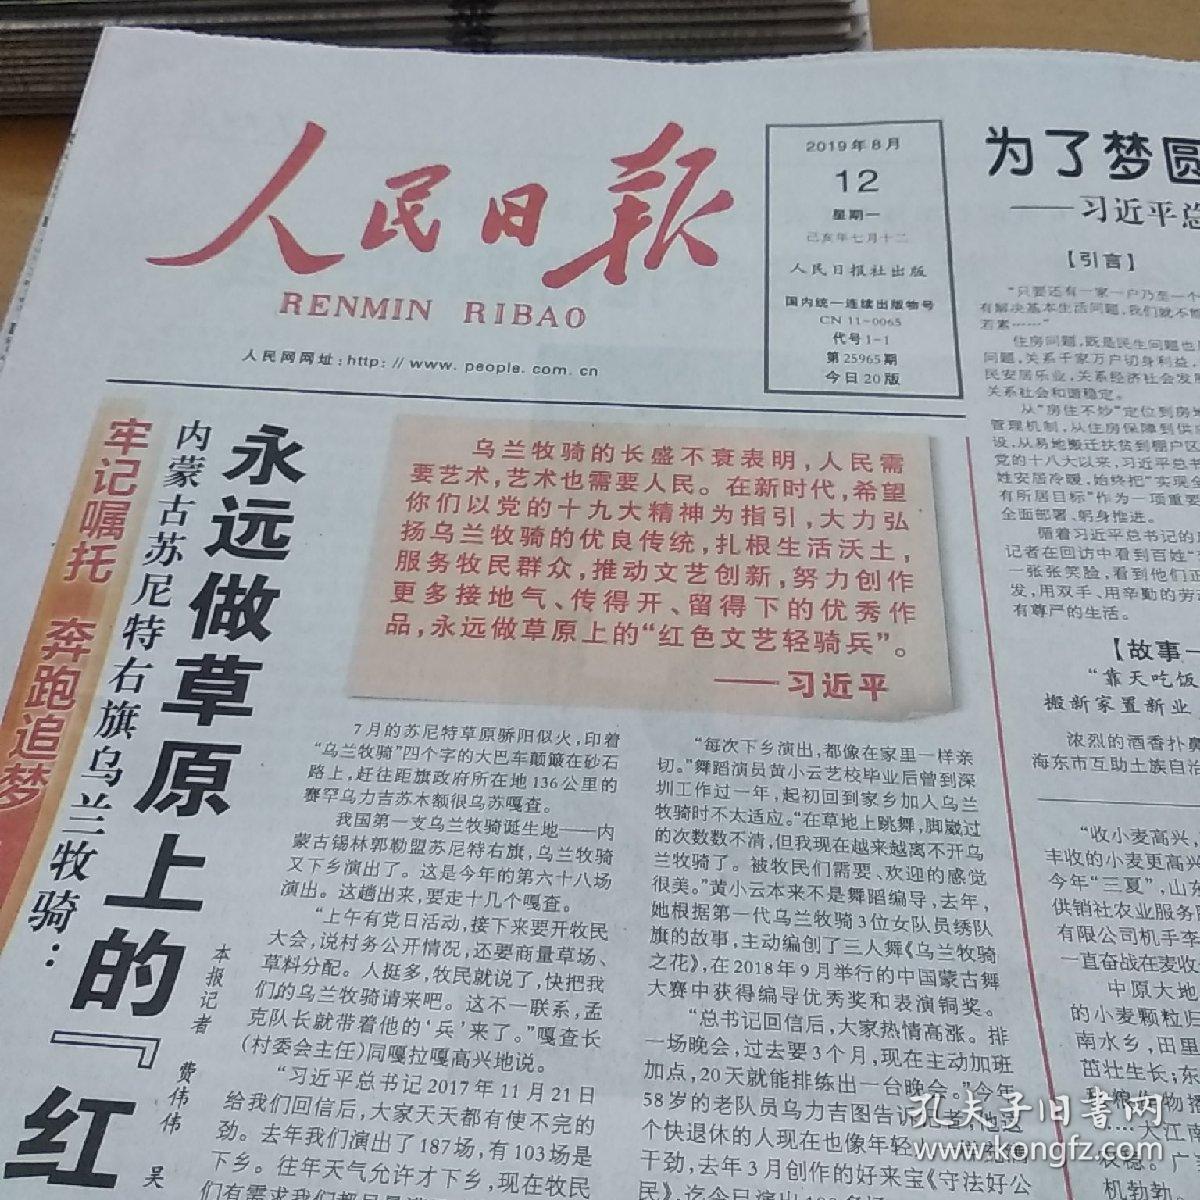 人民日报
RENMIN RIBAO
人民网网址:http://www.people.com.cn
2019年8月
12
星期一
己亥年七月十二
人民日报社出版
国内统一连续出版物号
CN 11-0065
代号1-1
第25965期
今日20版
牢记嘱托 奔跑追梦
内蒙古苏尼特右旗乌兰牧骑：
永远做草原上的“红
本报记者 费伟伟 吴
乌兰牧骑的长盛不衰表明，人民需
要艺术，艺术也需要人民。在新时代，希望
你们以党的十九大精神为指引，大力弘
扬乌兰牧骑的优良传统，扎根生活沃土，
服务牧民群众，推动文艺创新，努力创作
更多接地气、传得开、留得下的优秀作
品，永远做草原上的“红色文艺轻骑兵”。
——习近平
7月的苏尼特草原骄阳似火，印着
“乌兰牧骑”四个字的大巴车颠簸在砂石
路上，赶往距旗政府所在地136公里的
赛罕乌力吉苏木额很乌苏嘎查。
我国第一支乌兰牧骑诞生地——内
蒙古锡林郭勒盟苏尼特右旗，乌兰牧骑
又下乡演出了。这是今年的第六十八场
演出。这趟出来，要走十几个嘎查。
“上午有党日活动，接下来要开牧民
大会，说村务公开情况，还要商量草场、
草料分配。人挺多，牧民就说了，快把我
们的乌兰牧骑请来吧。这不一联系，孟
克队长就带着他的‘兵’来了。”嘎查长
（村委会主任）同嘎拉嘎高兴地说。
“习近平总书记2017年11月21日
给我们回信后，大家天天都有使不完的
劲。去年我们演出了187场，有103场是
下乡。往年天气允许才下乡，现在牧民
“每次下乡演出，都像在家里一样亲
切。”舞蹈演员黄小云艺校毕业后曾到深
圳工作过一年，起初回到家乡加入乌兰
牧骑时不太适应。“在草地上跳舞，脚崴过
的次数数不清，但我现在越来越离不开乌
兰牧骑了。被牧民们需要、欢迎的感觉
很美。”黄小云本来不是舞蹈编导，去年，
她根据第一代乌兰牧骑3位女队员绣队
旗的故事，主动编创了三人舞《乌兰牧骑
之花》，在2018年9月举行的中国蒙古舞
大赛中获得编导优秀奖和表演铜奖。
“总书记回信后，大家热情高涨。排
一场晚会，过去要3个月，现在主动加班
加点，20天就能排练出一台晚会。”今年
58岁的老队员乌力吉图告诉记者，
个快退休的人现在也像年轻
干劲，去年3月创作的好来宝《守法好公
为了梦圆
——习近平总
【引言】
“只要还有一家一户乃至一个
有解决基本生活问题，我们就不能
若素……”
住房问题，既是民生问题也
问题，关系千家万户切身利益，
民安居乐业，关系经济社会发展
关系社会和谐稳定。
从“房住不炒”定位到房
管理机制，从住房保障到供
设，从易地搬迁扶贫到棚户区
党的十八大以来，习近平总书
姓安居冷暖，始终把“实现全
有所居目标”作为一项重要
全面部署、躬身推进。
循着习近平总书记的
记者在回访中看到百姓
一张张笑脸，看到他们正
发，用双手、用辛勤的劳
有尊严的生活。
【故事一
“靠天吃饭
搬新家置新业
浓烈的酒香扑鼻
海东市互助土族自治
“收小麦高兴，
丰收的小麦更高兴
今年“三夏”，山东
供销社农业服务
有限公司机手李
一直奋战在麦收
中原大地
的小麦颗粒归
南水乡，田里
茁壮生长；东
孔夫子旧书网
www.kongfz.com